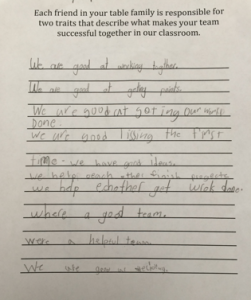 Each friend in your table family is responsible for
two traits that describe what makes your team
successful together in our classroom.
We are good at working together.
We are good at geting points.
We are good at goring our work
done.
We are good lising the first
time. we have good ideas.
we help each other finish projects
we help echother get work done.
where a good team.
were a helpful team
We are good at